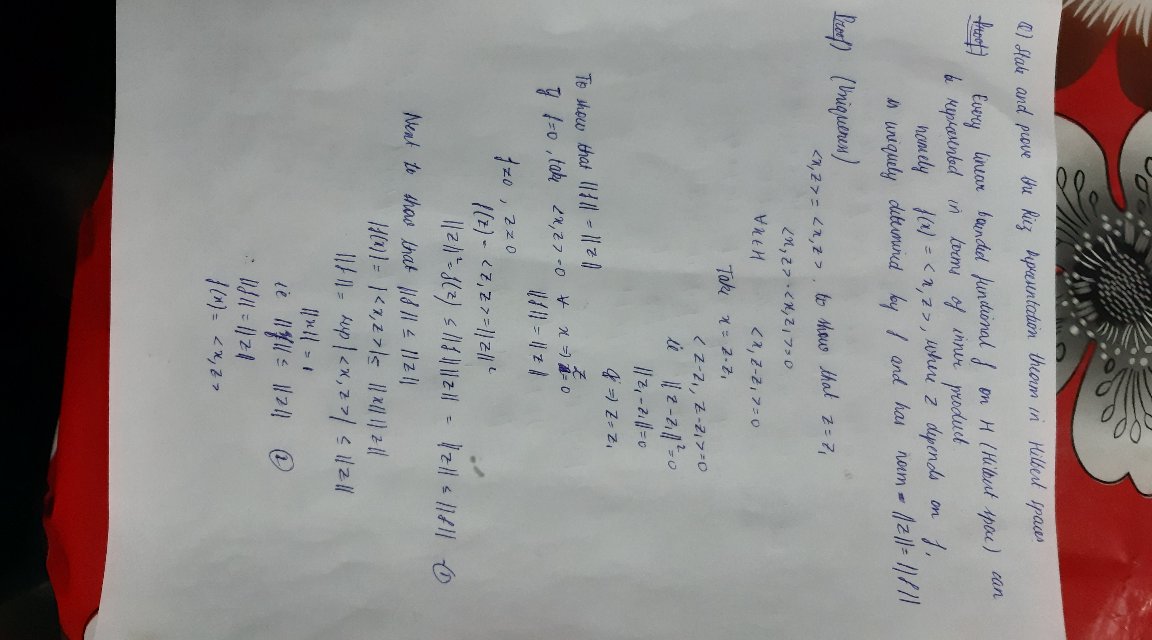 Q) State and prove the Riez Representation theorem in Hilbert spaces
Proof) Every linear bounded functional f on H (Hilbert space) can
be represented in terms of inner product
namely f(x) = <x, z>, where z depends on f,
is uniquely determined by f and has norm = ||z|| = ||f||
Proof) (Uniqueness)
<x, z> = <x, z>. to show that z = z₁
<x, z> - <x, z₁> = 0
∀ x ∈ H <x, z-z₁> = 0
Take x = z-z₁
< z-z₁, z-z₁> = 0
ie ||z-z₁||² = 0
||z₁-z₁|| = 0
⇒ z = z₁
To show that ||f|| = ||z||
If f=0, take <x, z> = 0 ∀ x ⇒ z = 0
||f|| = ||z||
f≠0, z≠0
f(z) = <z, z> = ||z||²
||z||² = f(z) ≤ ||f|| ||z|| = ||z|| ≤ ||f|| - ①
Next to show that ||f|| ≤ ||z||
|f(x)| = |<x, z>| ≤ ||x|| ||z||
||f|| = sup |<x, z>| ≤ ||z||
||x|| = 1
ie ||f|| ≤ ||z|| ②
∴ ||f|| = ||z||
f(x) = <x, z>